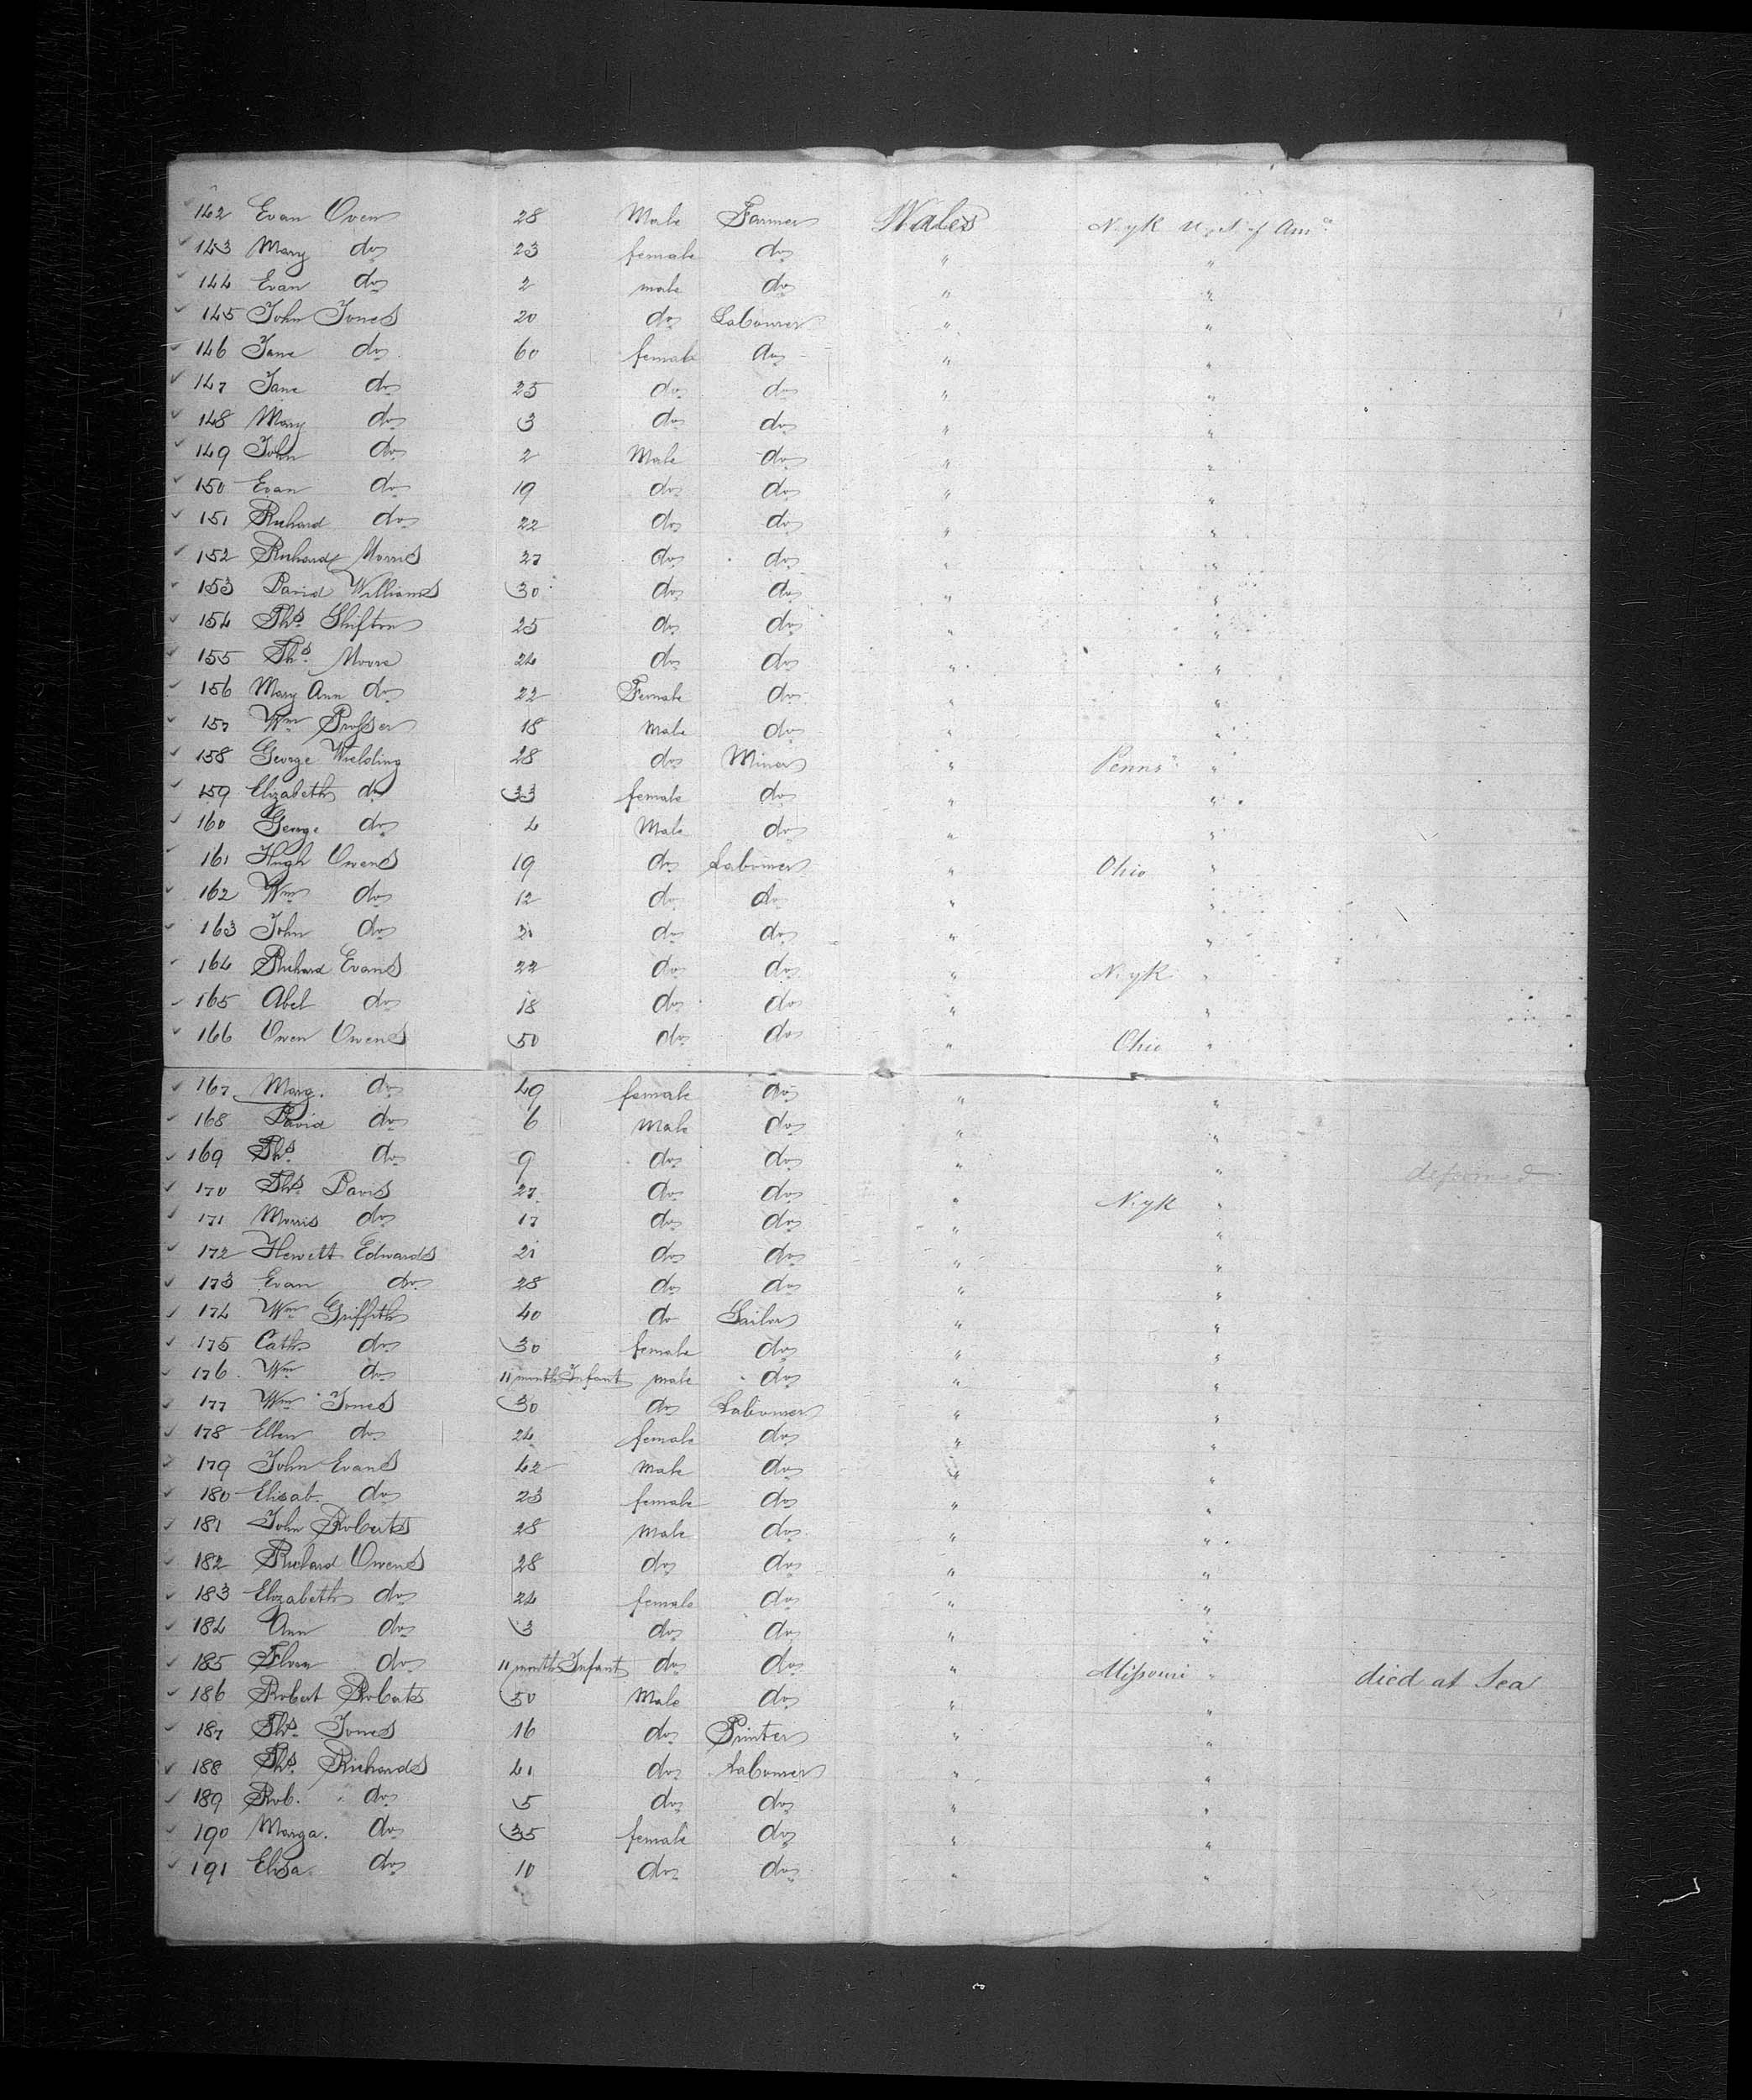 142 Evan Owen 28 Male Farmer Wales N. yk U. St. of Amª
143 Mary do 23 female do " "
144 Evan do 2 male do " "
145 John Jones 20 do Labourer " "
146 Jane do 60 female do " "
147 Jane do 25 do do " "
148 Mary do 3 do do " "
149 John do 2 Male do " "
150 Evan do 19 do do " "
151 Richard do 22 do do " "
152 Richard Morris 27 do do " "
153 David Williams 30 do do " "
154 Ths Shifton 25 do do " "
155 Ths Moore 24 do do " "
156 Mary Ann do 22 Female do " "
157 Wm Prosser 18 Male do " "
158 George Wielding 28 do Miner " Penns "
159 Elizabeth do 33 female do " "
160 George do 4 Male do " "
161 Hugh Owens 19 do Labourer " Ohio "
162 Wm do 12 do do " "
163 John do 21 do do " "
164 Richard Evans 22 do do " N. yk "
165 Abel do 18 do do " "
166 Owen Owens 50 do do " Ohio "
167 Marg. do 49 female do " "
168 David do 6 Male do " "
169 Ths do 9 do do " " deformed
170 Ths Davis 27 do do " N. yk "
171 Morris do 17 do do " "
172 Hewett Edwards 21 do do " "
173 Evan do 28 do do " "
174 Wm Griffith 40 do Sailor " "
175 Cath do 30 female do " "
176 Wm do 11 month Infant male do " "
177 Wm Jones 30 do Labourer " "
178 Ellen do 24 female do " "
179 John Evans 42 Male do " "
180 Elisab. do 23 female do " "
181 John Roberts 28 Male do " "
182 Richard Owens 28 do do " "
183 Elizabeth do 24 female do " "
184 Ann do 3 do do " "
185 do 11 month Infant do do " Missouri " died at Sea
186 Robert Roberts 50 Male do " "
187 Ths Jones 16 do Printer " "
188 Ths Richards 41 do Labourer " "
189 Rob. do 5 do do " "
190 Marga. do 35 female do " "
191 Elisa do 10 do do " "